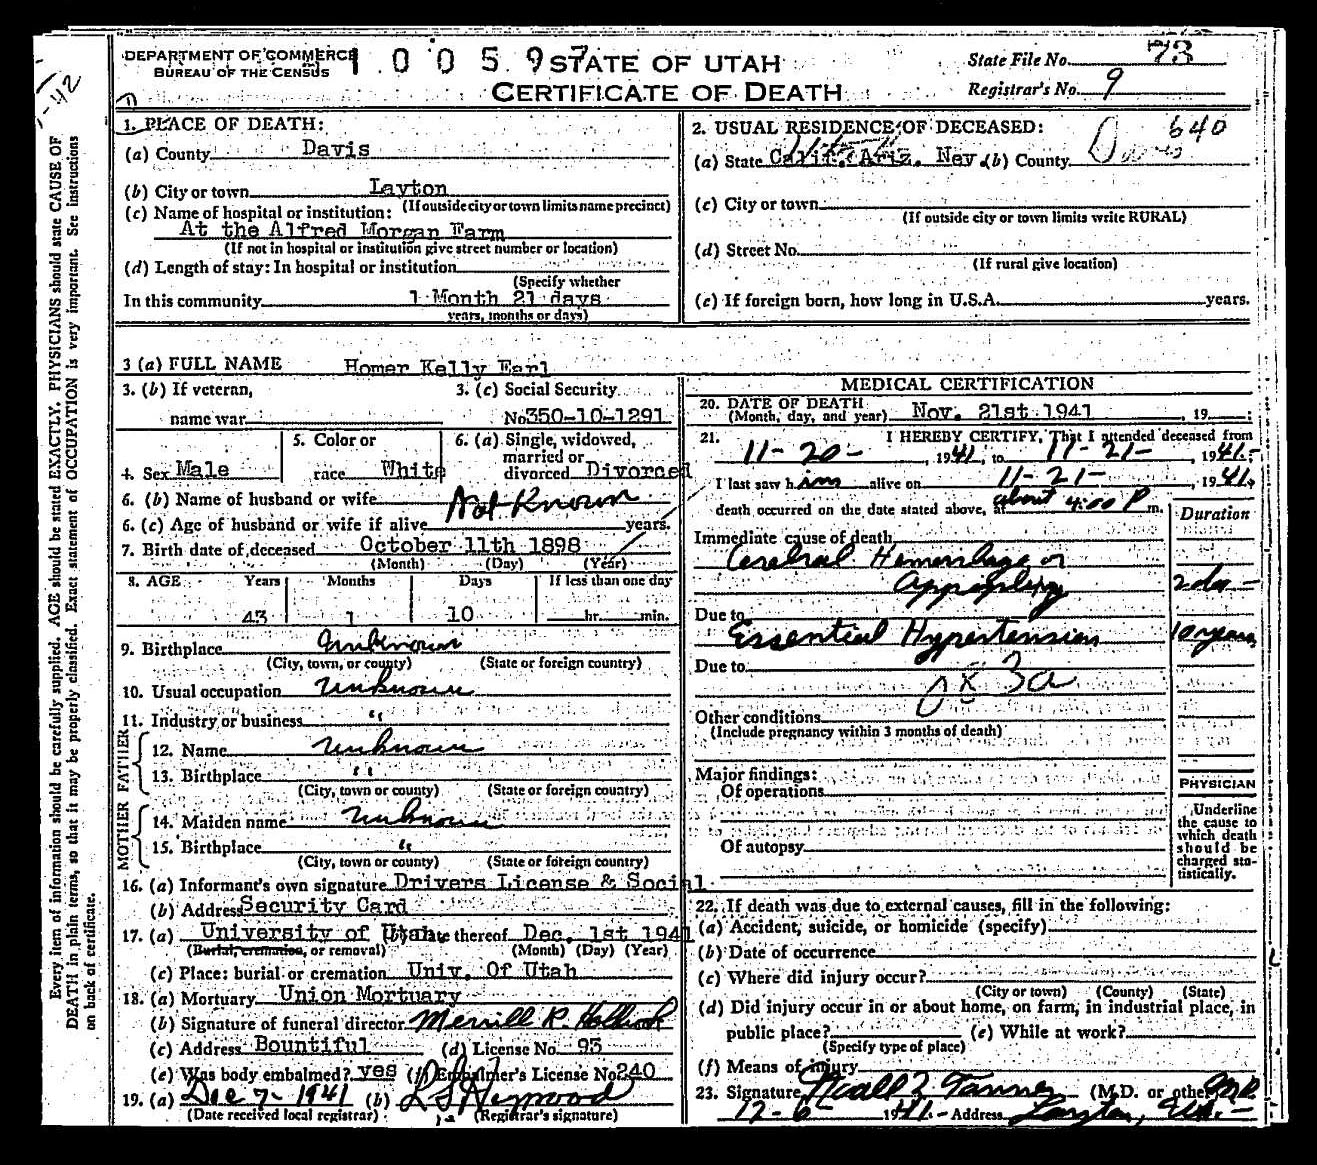 DEPARTMENT OF COMMERCE
BUREAU OF THE CENSUS
1 0 0 5 9 7
STATE OF UTAH
CERTIFICATE OF DEATH
State File No. 73
Registrar's No. 9
1-42
Every item of information should be carefully supplied. AGE should be stated EXACTLY. PHYSICIANS should state CAUSE OF
DEATH in plain terms, so that it may be properly classified. Exact statement of OCCUPATION is very important. See instructions
on back of certificate.
1. PLACE OF DEATH:
(a) County Davis
(b) City or town Layton
(If outside city or town limits name precinct)
(c) Name of hospital or institution:
At the Alfred Morgan Farm
(If not in hospital or institution give street number or location)
(d) Length of stay: In hospital or institution
(Specify whether
In this community 1 Month 21 days
years, months or days)
2. USUAL RESIDENCE OF DECEASED: 640
(a) State Calif. Ariz. Nev. (b) County Davis
(c) City or town
(If outside city or town limits write RURAL)
(d) Street No.
(If rural give location)
(e) If foreign born, how long in U.S.A. years.
3 (a) FULL NAME Homer Kelly Earl
3. (b) If veteran,
name war
3. (c) Social Security
No 350-10-1291
4. Sex Male
5. Color or
race White
6. (a) Single, widowed,
married or
divorced Divorced
6. (b) Name of husband or wife Not Known
6. (c) Age of husband or wife if alive years.
7. Birth date of deceased October 11th 1898
(Month) (Day) (Year)
8. AGE Years Months Days If less than one day
43 1 10 hr. min.
9. Birthplace unknown
(City, town, or county) (State or foreign country)
10. Usual occupation unknown
11. Industry or business "
FATHER
12. Name unknown
13. Birthplace "
(City, town or county) (State or foreign country)
MOTHER
14. Maiden name unknown
15. Birthplace "
(City, town or county) (State or foreign country)
16. (a) Informant's own signature Drivers License & Social
(b) Address Security Card
17. (a) University of Utah (b) Date thereof Dec. 1st 1941
(Burial, cremation, or removal) (Month) (Day) (Year)
(c) Place: burial or cremation Univ. Of Utah
18. (a) Mortuary Union Mortuary
(b) Signature of funeral director Merrill R. Holbrook
(c) Address Bountiful (d) License No. 93
(e) Was body embalmed? yes (f) Embalmer's License No 240
19. (a) Dec 7- 1941 (b) L S Heywood
(Date received local registrar) (Registrar's signature)
MEDICAL CERTIFICATION
20. DATE OF DEATH
(Month, day, and year) Nov. 21st 1941, 19
21. I HEREBY CERTIFY, That I attended deceased from
11-20-, 1941, to 11-21-, 1941.
I last saw him alive on 11-21-, 1941.
death occurred on the date stated above, at about 4:00 P m.
Duration
Immediate cause of death
Cerebral Hemorrhage or
Appoplexy 2 da-
Due to
Essential Hypertension 10 years
Due to
83a
Other conditions
(Include pregnancy within 3 months of death)
Major findings:
Of operations
Of autopsy
PHYSICIAN
Underline
the cause to
which death
should be
charged sta-
tistically.
22. If death was due to external causes, fill in the following:
(a) Accident, suicide, or homicide (specify)
(b) Date of occurrence
(c) Where did injury occur?
(City or town) (County) (State)
(d) Did injury occur in or about home, on farm, in industrial place, in
public place? (e) While at work?
(Specify type of place)
(f) Means of injury
23. Signature Noall Z Tanner (M.D. or other) M.D.
12-6 1941 - Address Layton, Utah